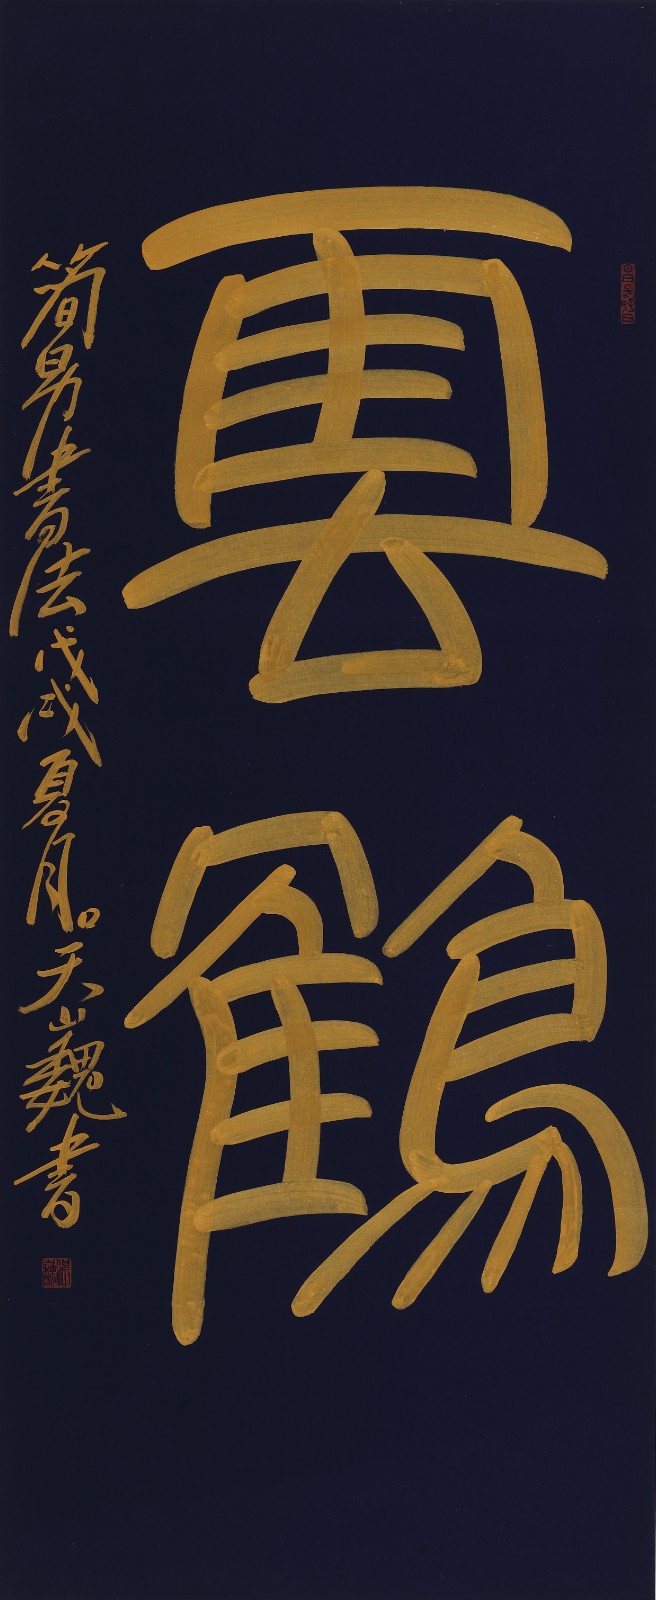 雲鶴
簡易書法戊戌夏月。天山魏書